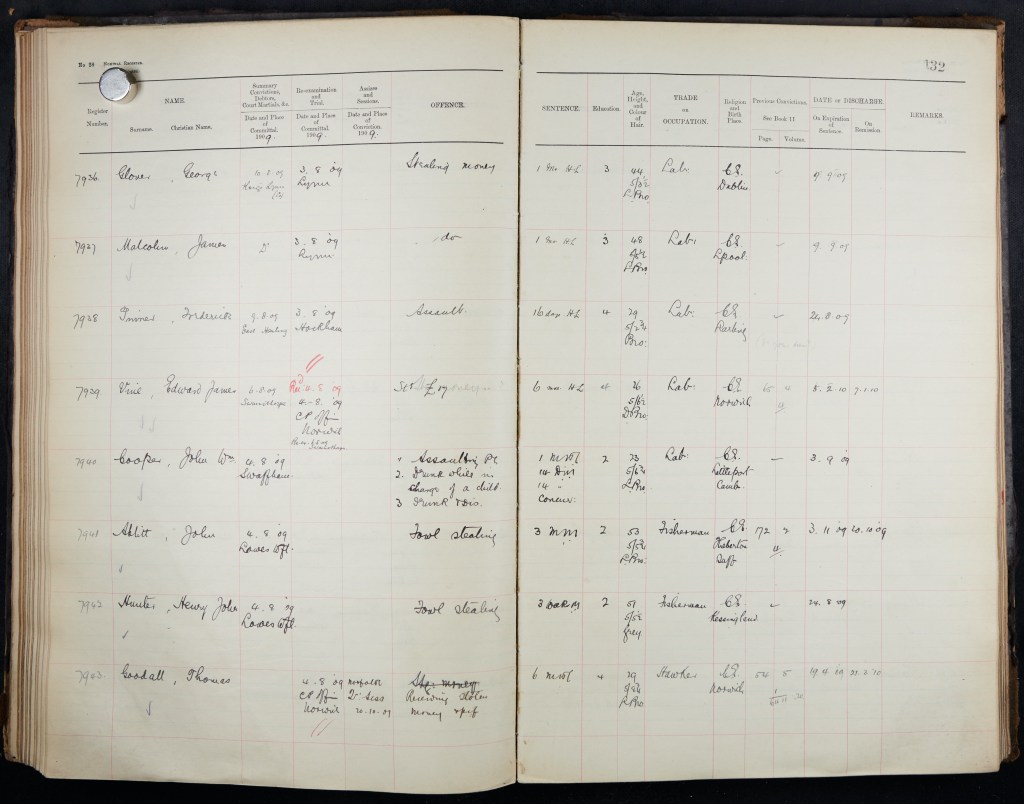 No 28 NOMINAL REGISTER.
132
Register Number.
NAME.
Surname. Christian Name.
Summary Convictions, Debtors, Court Martials, &c.
Date and Place of Committal. 1909.
Re-examination and Trial.
Date and Place of Committal. 1909.
Assizes and Sessions.
Date and Place of Conviction. 1909.
OFFENCE.
SENTENCE.
Education.
Age, Height, and Colour of Hair.
TRADE OR OCCUPATION.
Religion and Birth Place.
Previous Convictions.
See Book 11
Page. Volume.
DATE OF DISCHARGE.
On Expiration of Sentence.
On Remission.
REMARKS.
7936 Glover, George 3.8.09 Stealing money 1 Mo H.L 3 44 Lab: CE 9.9.09
Kings Lynn Lynn 5/3½ Dublin
L.Bro
7937 Malcolm, James Do 3.8.09 do 1 Mo H.L 3 48 Lab: CE 9.9.09
Lynn L'pool
L.Bro
7938 Frederick 9.8.09 3.8.09 Assault 16 days H.L 4 29 Lab: CE 24.8.09
East Harling Hockham 5/2¾ Harling
Bro:
7939 Vine, Edward James 6.8.09 Rec'd 4.8.09 6 mos H.L 26 Lab: CE 8.2.10 7.1.10
Swainsthorpe 4.8.09 Norwich
Norwich D.Bro:
7940 Cooper, John Wm 4.8.09 1 Assaulting P.C. 1 M 2 23 Lab: CE 3.9.09
Swaffham 2. Drunk while in 14 5/6¾ Littleport
charge of a child. 14 L.Bro Camb.
3 Drunk & Dis. Concur:
7941 Ablitt, John 4.8.09 Fowl stealing 3 2 53 Fisherman CE 172 2 3.11.09 20.10.09
Lowestoft. L.Bro: Suff
7942 Hunter, Henry John 4.8.09 Fowl stealing 3 2 51 Fisherman CE 24.8.09
Lowestoft. 5/5½ Kessingland
Grey
7943 Goodall, Thomas 4.8.09 Norfolk Stag money 6 4 29 Hawker CE 54 5
Norwich 20.10.09 Receiving stolen L.Bro Norwich
money